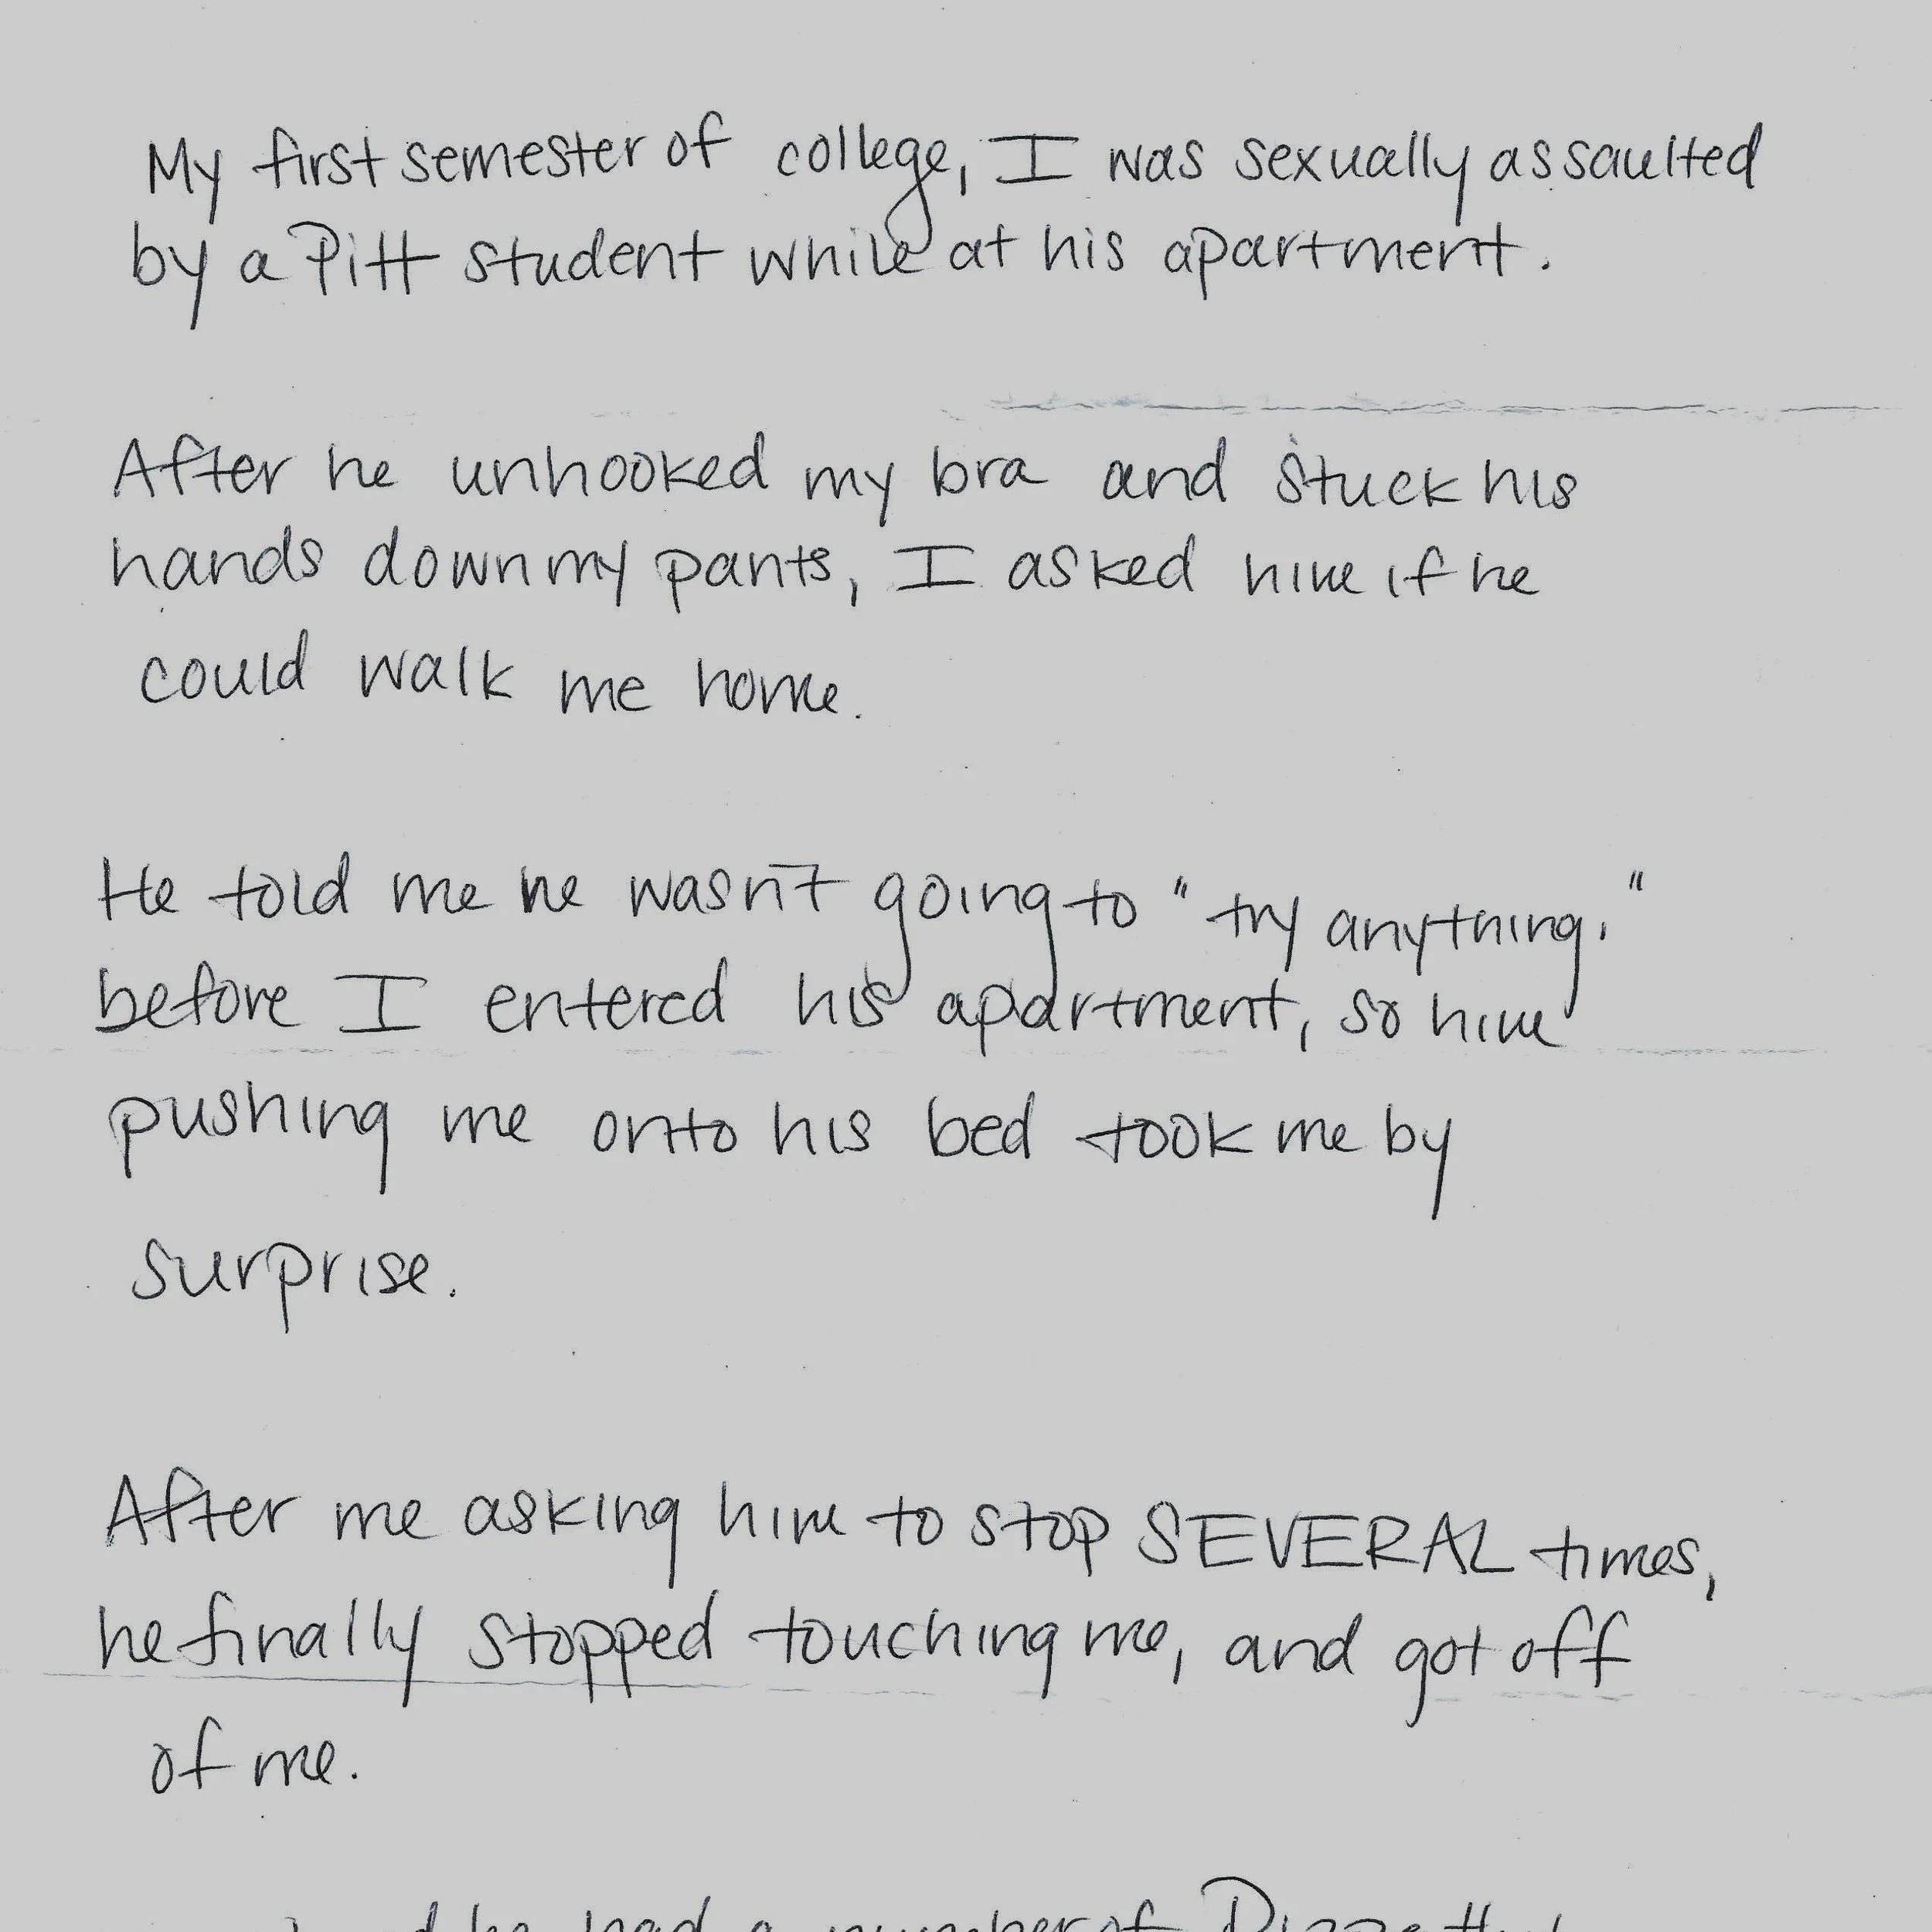 My first semester of college, I was sexually assaulted
by a Pitt student while at his apartment.
After he unhooked my bra and stuck his
hands down my pants, I asked him if he
could walk me home.
He told me he wasn't going to "try anything."
before I entered his apartment, so him
pushing me onto his bed took me by
surprise.
After me asking him to stop SEVERAL times,
he finally stopped touching me, and got off
of me.
he had a number of